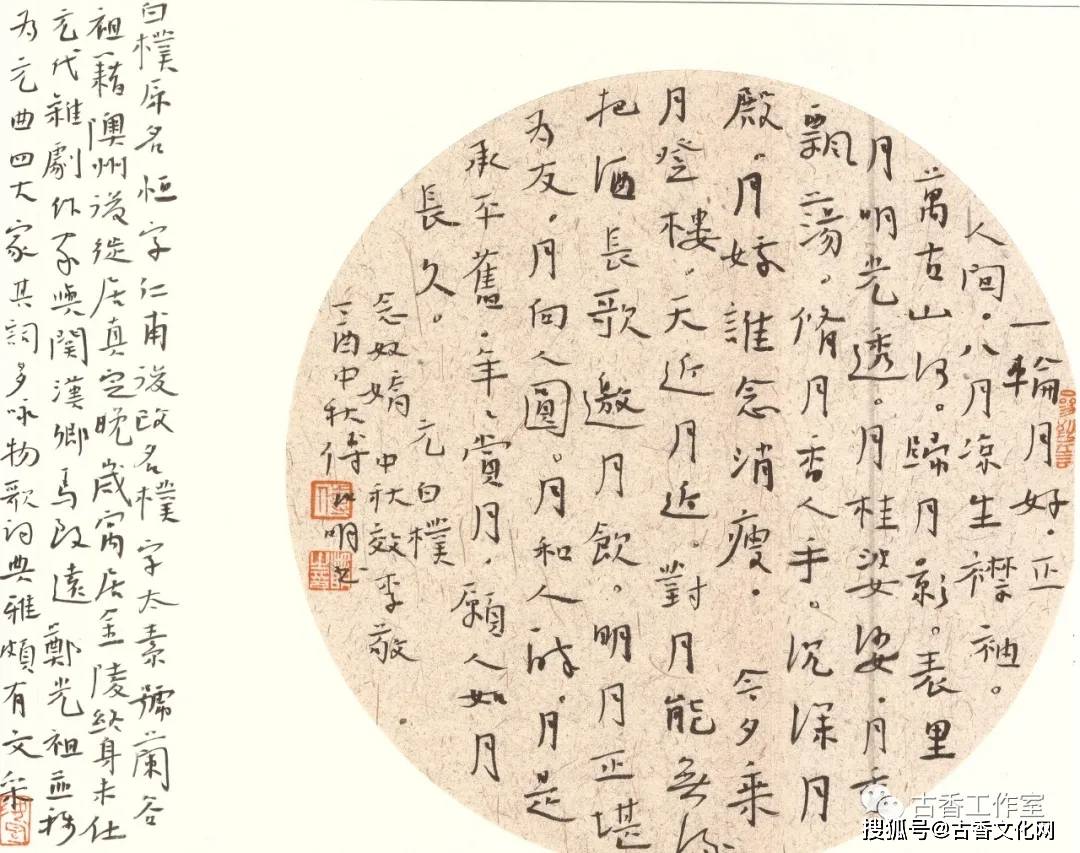 一輪月好.正
人間.八月凉生襟袖。
萬古山河。歸月影。表里
月明光透。月桂婆娑.月香
飄蕩。脩月香人手。沉深月
殿.月娥誰念消瘦. 今夕乘
月登樓。天近月近。對月能無
把酒長歌邀月飲。明月正堪
為友.月向人圓。月和人醉.月是
承平舊.年、賞月.願人如月
長久。 元 白樸
念奴嬌 中秋效李敬
丁酉中秋傅明書
白樸原名恒字仁甫後改名樸字太素號蘭谷
祖籍隩州後徙居真定晚歲寓居金陵終身未仕
元代雜劇作家與關漢卿馬致遠鄭光祖並稱
為元曲四大家其詞多咏物歌詞典雅頗有文采
古香工作室
搜狐号@古香文化网